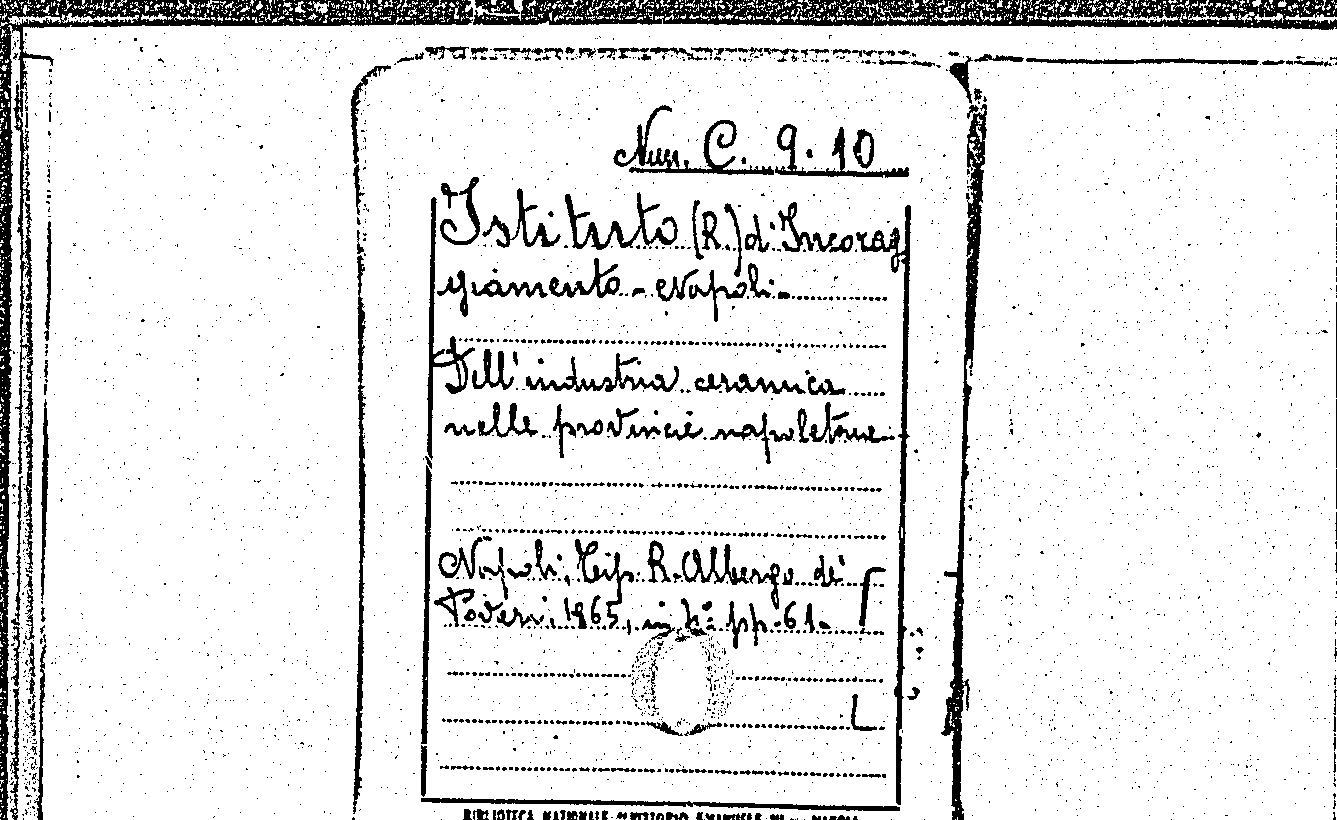 Nun. C. 9. 10
Istituto (R.) d'Incorag
giamento - Napoli -
Dell'industria ceramica
nelle provincie napoletane
Napoli, Tip. R. Albergo de'
Poveri, 1865, in 4º pp. 61.
BIBLIOTECA NAZIONALE VITTORIO EMANUELE III - NAPOLI